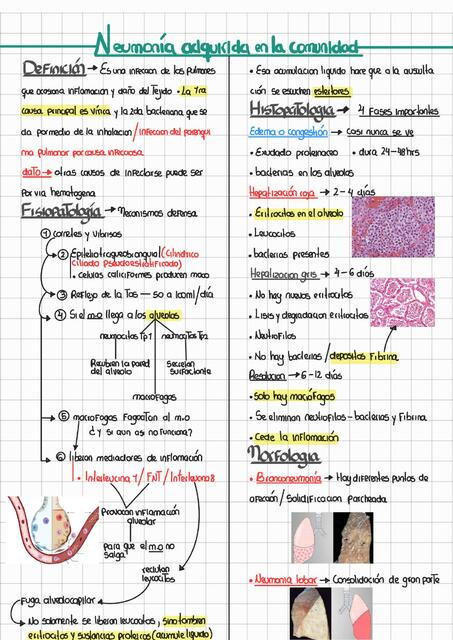 Neumonía adquirida en la comunidad
Definición → Es una infeccion de los pulmones
que ocasiona inflamacion y daño del Tejido • La 1ra
causa principal es vírica y la 2da bacteriana que se
da por medio de la inhalacion / infeccion del parenqui
ma pulmonar por causa infecciosa
dato → otras causas de infectarse puede ser
por via hematogena
Fisiopatología → Mecanismos defensa.
① cornetes y vibrisas
② Epitelio traqueobronquial (Cilindrico
Ciliado Pseudoestratificado)
• celulas caliciformes producen moco
③ Reflejo de la Tos — 50 a 100ml/día
④ Si el m.o llega a los alveolos
neumocitos Tp1 neumocitos Tp2
Recubren la pared
del alveolo
Secretan
surfactante
macrofagos
⑤ macrofagos Fagocitan al m.o
¿Y si aun asi no funciona?
⑥ liberan mediadores de inflamación
• Interleucina 1 / FNT / Interleucina 8
Provocan inflamación
alveolar
Para que el m.o no
salga
reclutar
leucocitos
Fuga alveolocapilar
→ No solamente se liberan leucocitos, sino tambien
eritrocitos y sustancias proteicas (acumule líquido)
• Esa acumulacion liquido hace que a la ausculta
ción se escuchen estertores
Histopatología → 4 Fases importantes
Edema o congestión → casi nunca se ve
• Exudado proteinaceo • dura 24-48hrs
• bacterias en los alveolos
Hepatización roja → 2-4 días
• Eritrocitos en el alveolo
• Leucocitos
• bacterias presentes
Hepatizacion gris → 4-6 diós
• No hay nuevos eritrocitos
• Lisis y degradacion eritrocitos
• Neutrofilos
• No hay bacterias / depositos Fibrina
Resolucion → 6-12 días
• Solo hay macrófagos
• Se eliminan neutrofilos - bacterias y Fibrina
• Cede la inflamación
Morfologia
• Bronconeumonía → Hay diferentes puntos de
afeccion / Solidificacion parcheada
• Neumonia lobar → Consolidación de gran parte